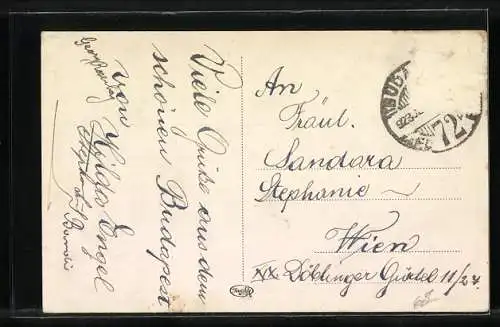 Viele Grüße aus dem
schönen Budapest
von Hilda Engel
An
Fräul.
Sandara
Stephanie
Wien
XIX. Döblinger Gürtel 11/24.
BUDA
72
68